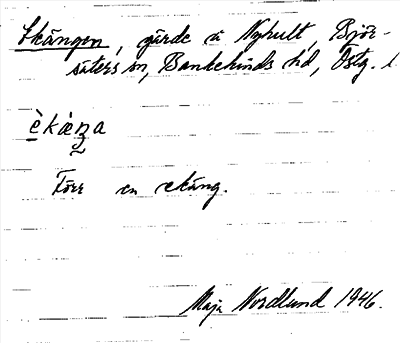 Ekängen, gärde å Nyhult, Björ-
säters sn, Bankekinds hd, Östg. l
èkæŋa
Förr en ekäng.
Maja Nordlund 1946.